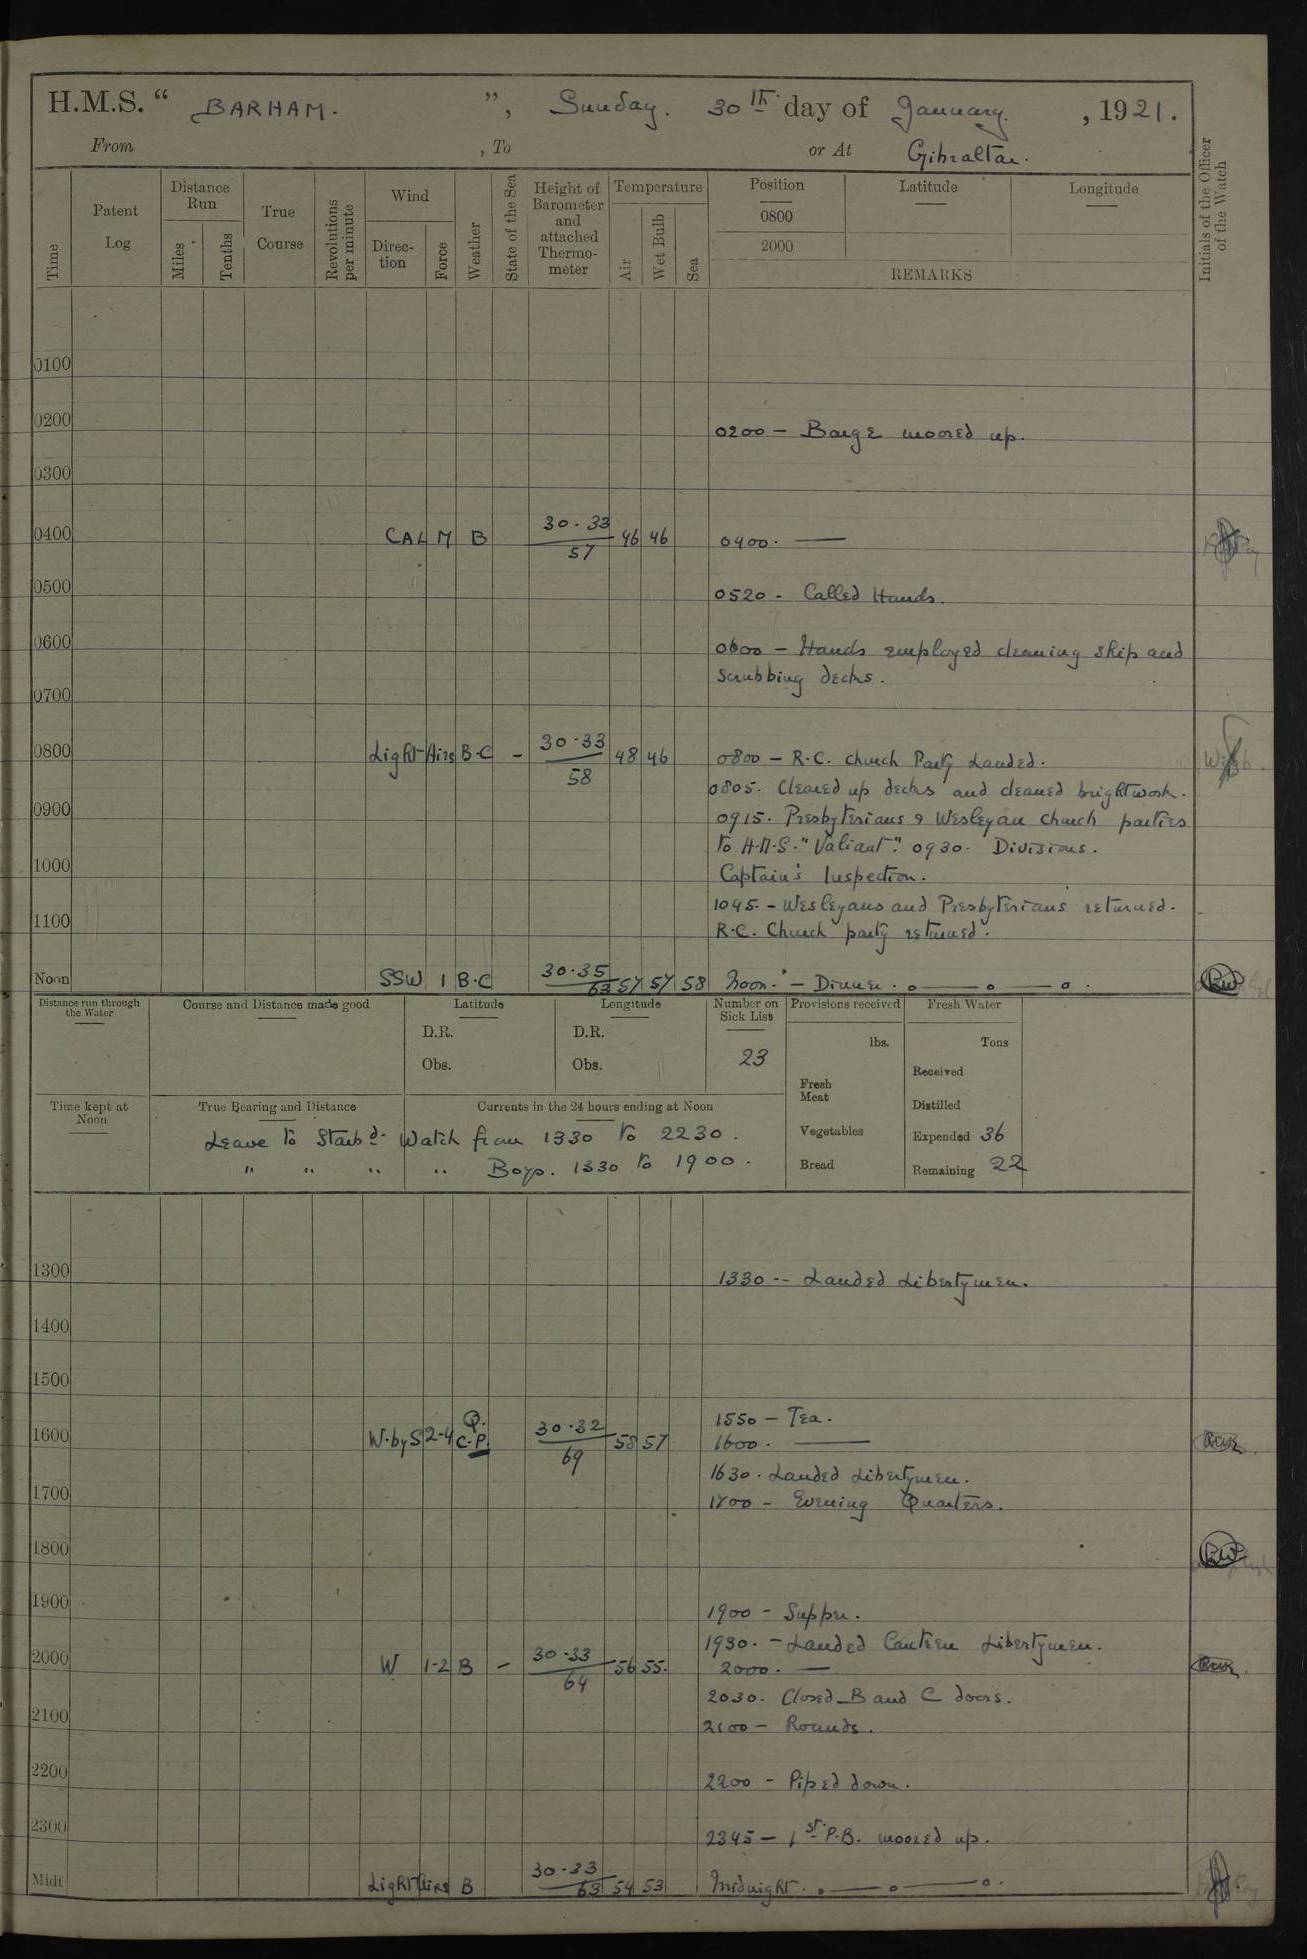 H.M.S. “ BARHAM. ”, Sunday. 30th day of January. , 1921.
From , To or At Gibraltar.
Time
Patent Log
Distance Run
Miles
Tenths
True Course
Revolutions per minute
Wind
Direc-tion
Force
Weather
State of the Sea
Height of Barometer and attached Thermo-meter
Temperature
Air
Wet Bulb
Sea
Position
0800
2000
Latitude
Longitude
REMARKS
Initials of the Officer of the Watch
0100
0200
0200 – Barge moored up.
0300
0400 CALM B 30.33 57 46 46 0400. —
0500
0520 – Called Hands.
0600
0600 – Hands employed cleaning ship and
scrubbing decks.
0700
0800 Light Airs B.C – 30.33 58 48 46 0800 – R.C. church Party Landed.
0805. Cleared up decks and cleaned brightwork.
0900
0915. Presbyterians & Wesleyan church parties
to H.M.S. "Valiant". 0930. Divisions.
1000
Captain's Inspection.
1045. – Wesleyans and Presbyterians returned.
1100
R.C. Church party returned.
Noon SSW 1 B.C 30.35 63 57 57 58 Noon. – Dinner.
Distance run through the Water
Course and Distance made good
Latitude
D.R.
Obs.
Longitude
D.R.
Obs.
Number on Sick List
23
Provisions received
lbs.
Fresh Meat
Vegetables
Bread
Fresh Water
Tons
Received
Distilled
Expended 36
Remaining 22
Time kept at Noon
True Bearing and Distance
Currents in the 24 hours ending at Noon
Leave to Starbd. Watch from 1330 to 2230.
" " " " Boys. 1330 to 1900.
1300
1330 -- Landed Libertymen.
1400
1500
1550 – Tea.
1600 W.byS 2-4 Q. C.P. 30.32 69 58 57 1600. —
1630. Landed Libertymen.
1700
1700 – Evening Quarters.
1800
1900
1900 – Supper.
1930. – Landed Canteen Libertymen.
2000 W 1-2 B – 30.33 64 56 55. 2000. —
2030. Closed B and C doors.
2100
2100 – Rounds.
2200
2200 – Piped down.
2300
2345 – 1st P.B. moored up.
Midt Light Airs B 30.33 63 54 53 Midnight.